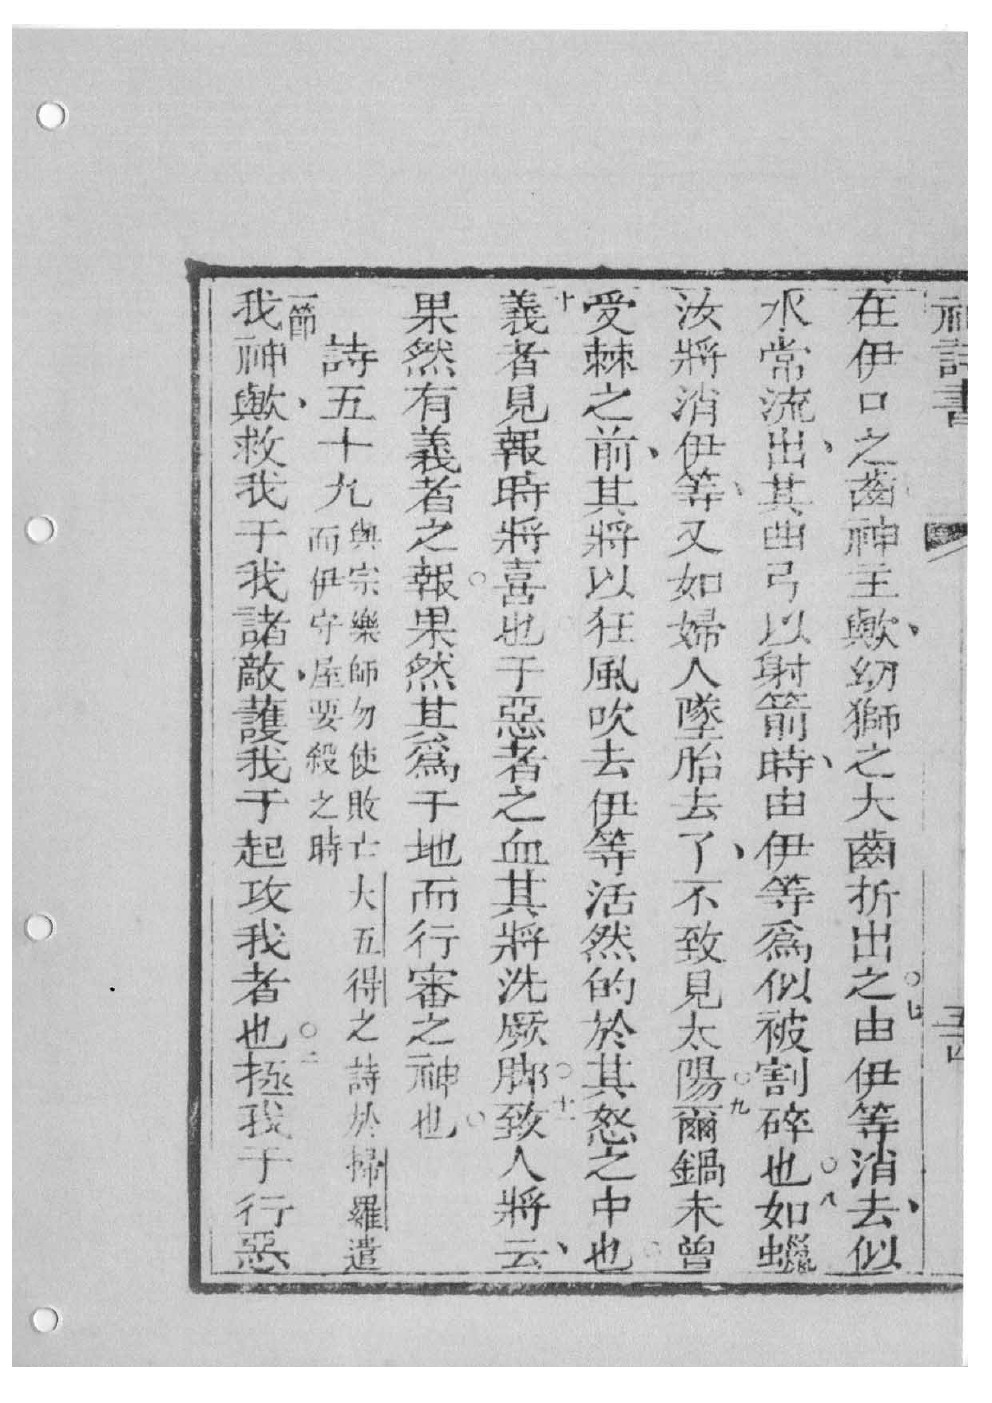 神詩書 五十四
在伊口之齒神主歟、幼獅之大齒折出之○七由伊等消去、似
水常流出、其曲弓以射箭時、由伊等爲似被割碎也○八如蠟
汝將消伊等、又如婦人墜胎去了、不致見太陽○九爾鍋未曾
受棘之前、其將以狂風吹去伊等活然的於其怒之中也○
十義者見報時將喜也于惡者之血其將洗厥脚○十一致人將云、
果然有義者之報○果然其爲于地而行審之神也○
詩五十九 與宗樂師勿使敗亡大五得之詩於掃羅遣
而伊守屋要殺之時
一節我神歟、救我于我諸敵、護我于起攻我者也○二拯我于行惡